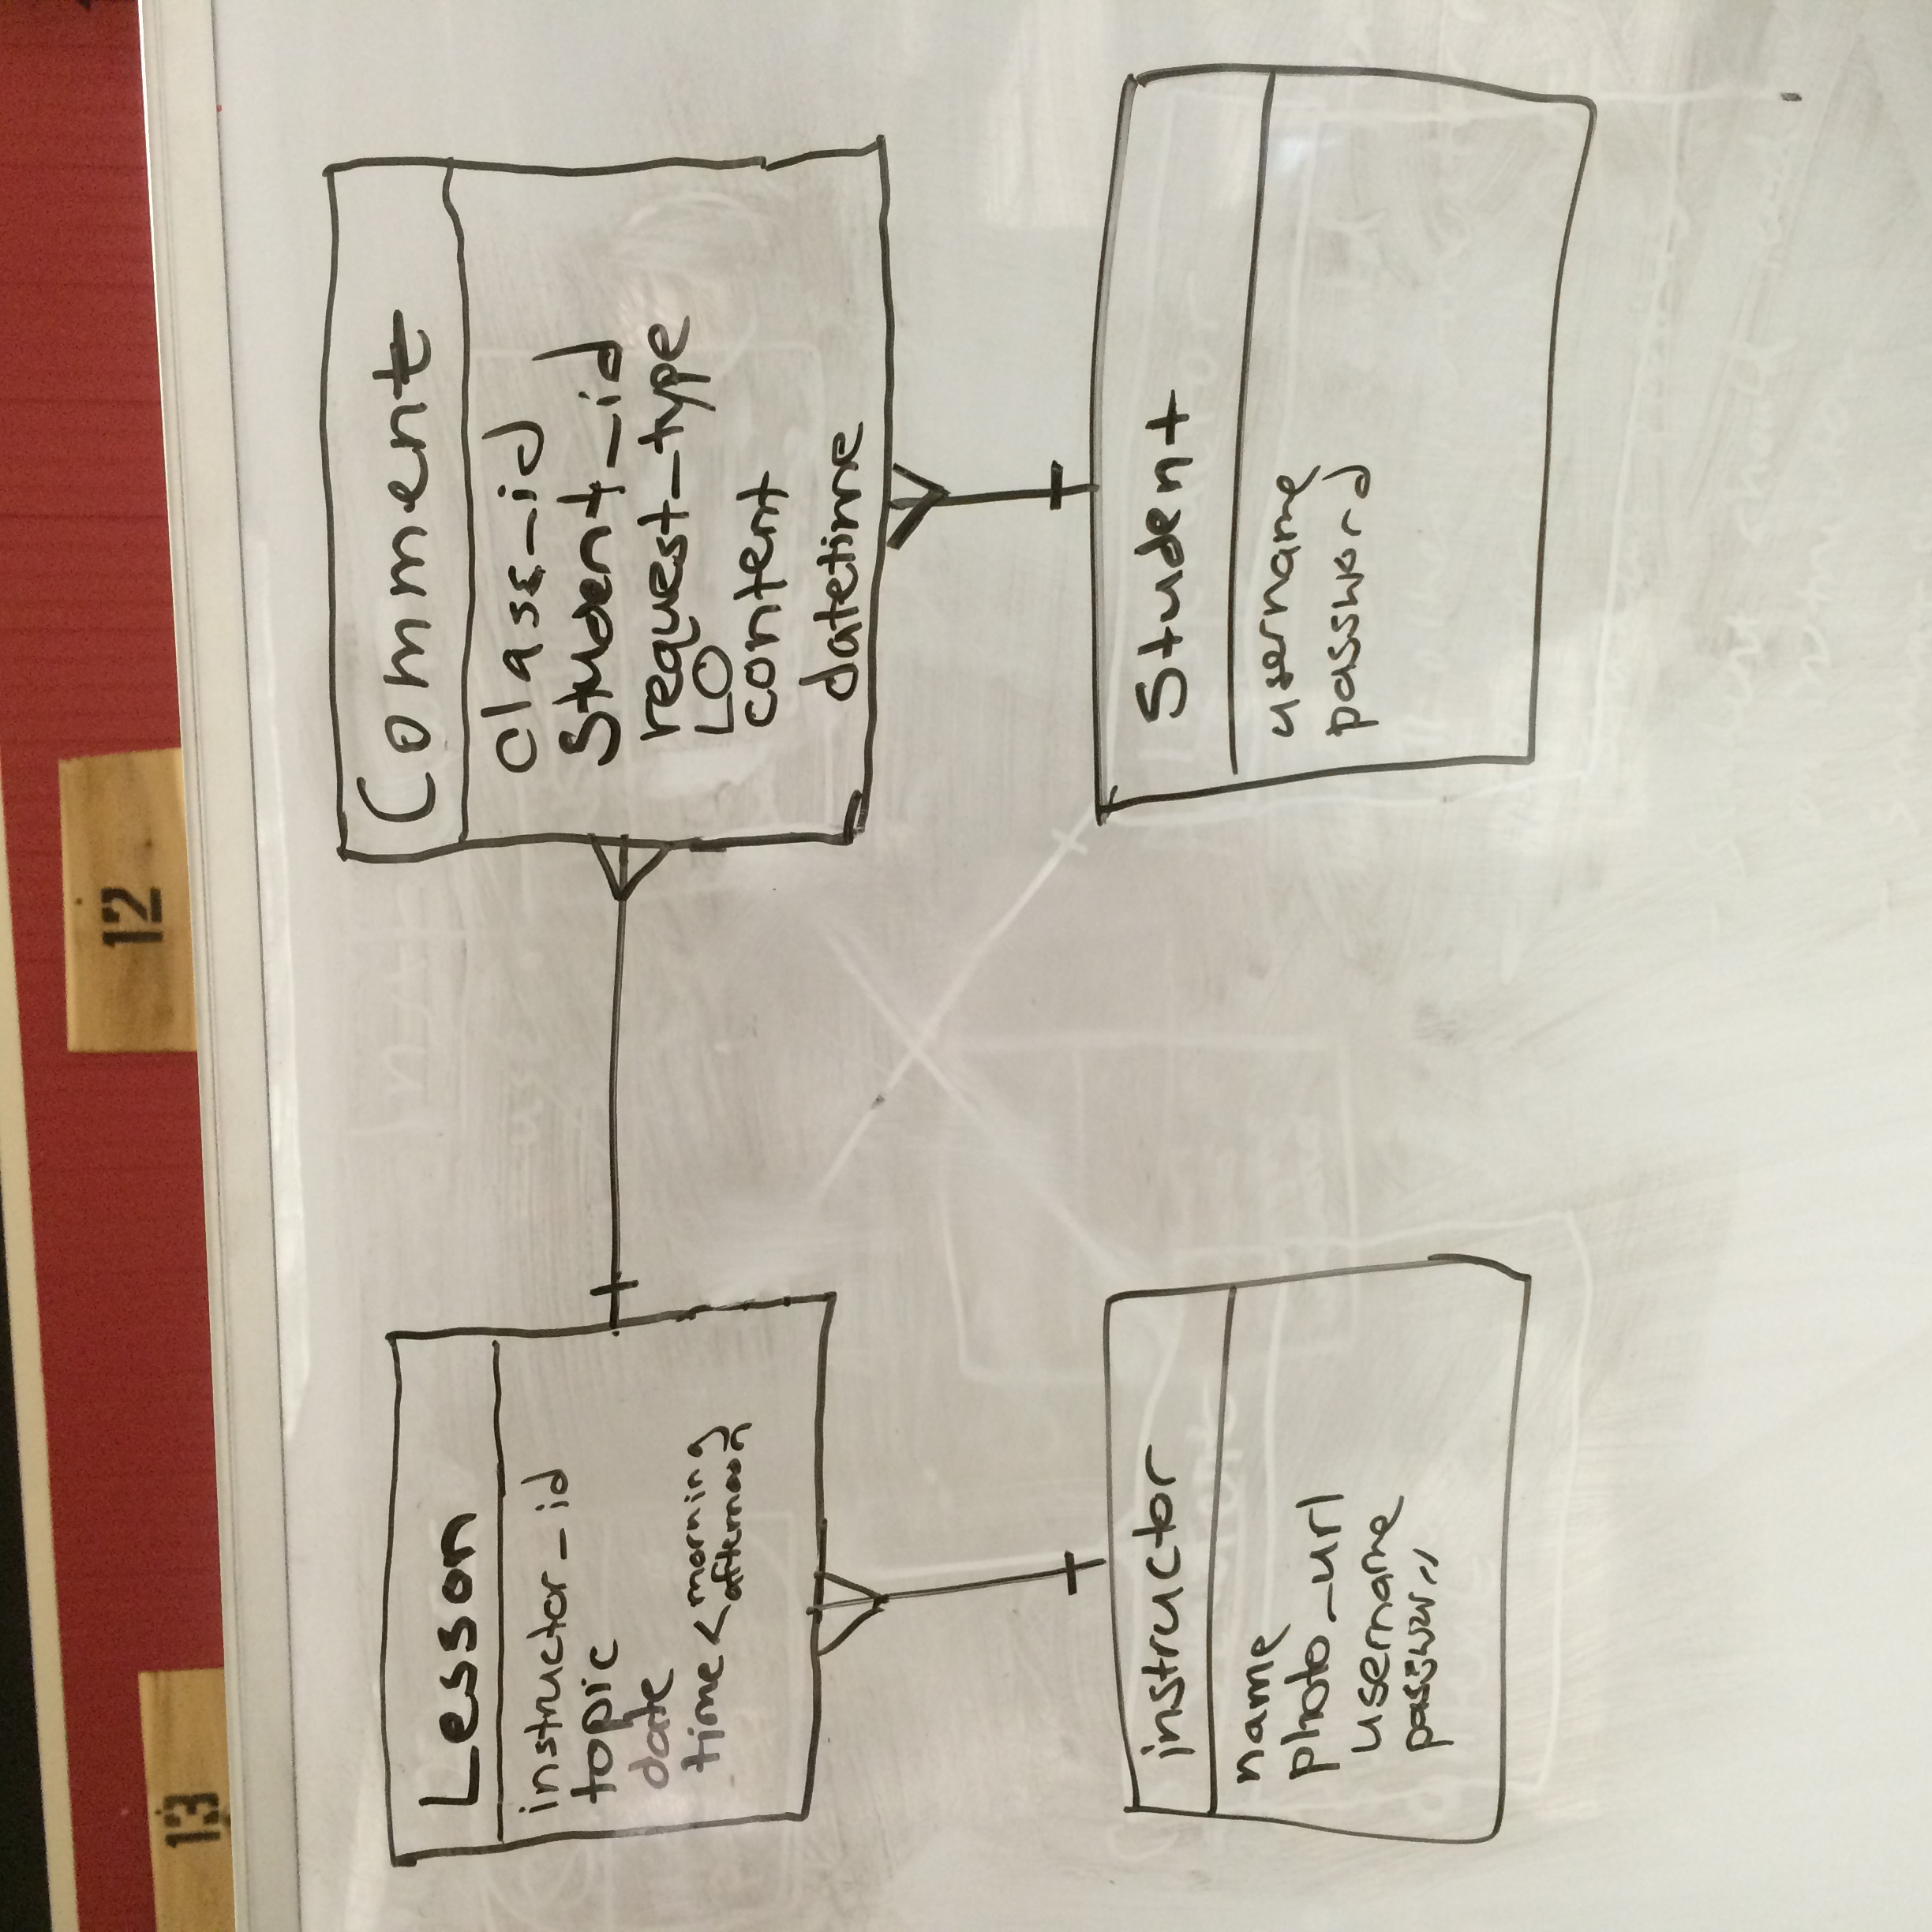 13
12
Lesson
instructor_id
topic
date
time < morning
afternoon
Comment
class_id
Student_id
request_type
LO
content
datetime
instructor
name
photo_url
username
password
Student
username
password
Student should